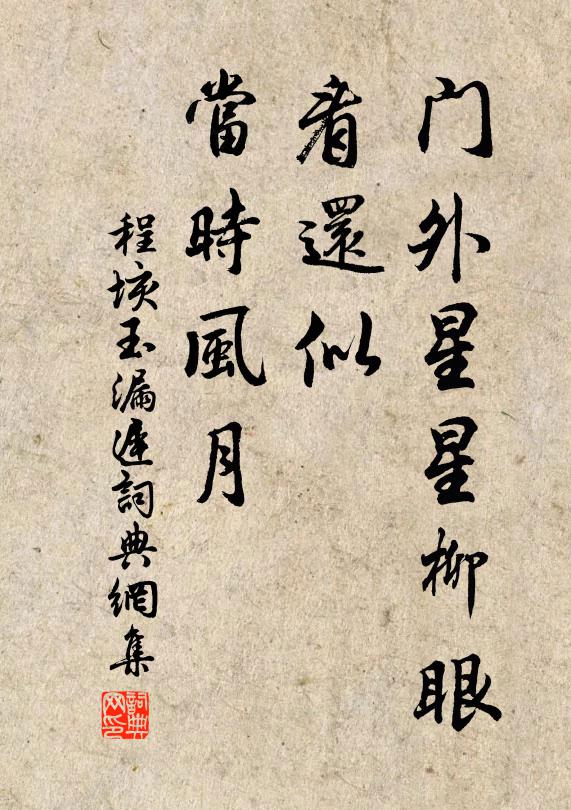 门外星星柳眼
看還似
當時風月
程垓玉漏遲詞典網集
詞典网印